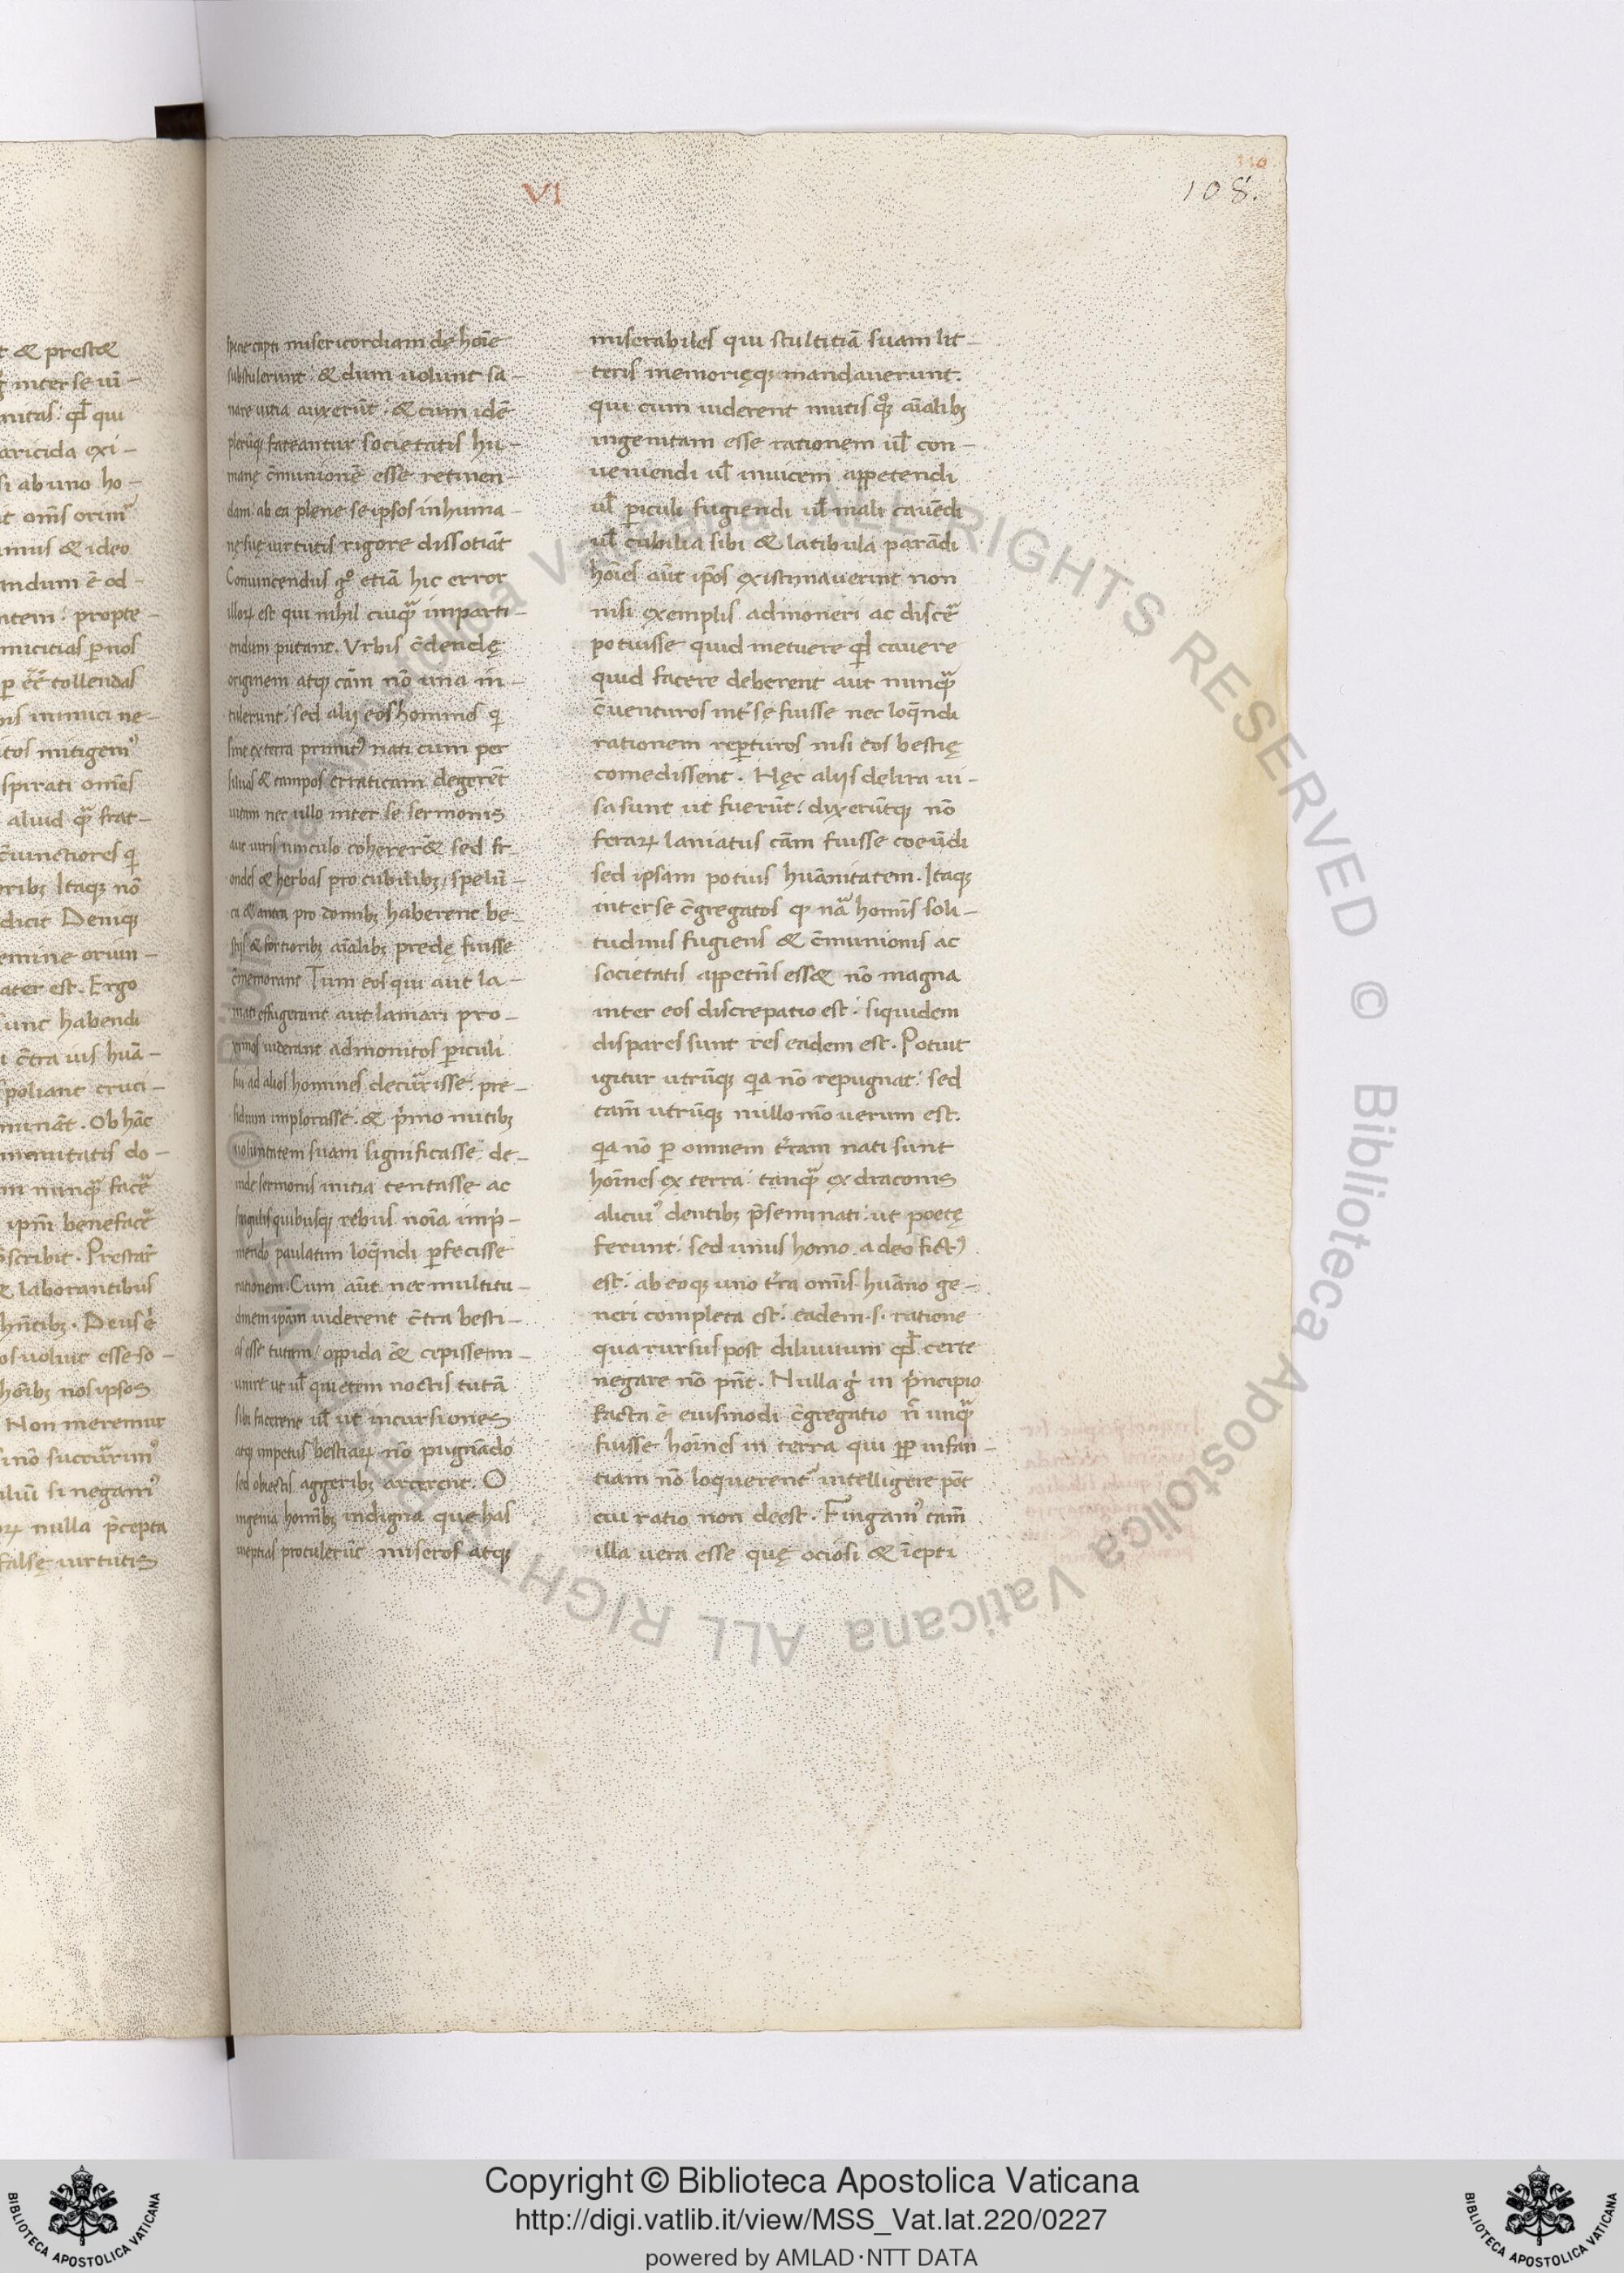 VI
110
108.
t & prest&
inter se ui-
nitas. qđ qui
aricida exi-
si ab uno ho-
t oms̄ orim᷒
imus & ideo
andum ē od-
ntem: propte-
micitias ꝑ nos
ꝑ eē tollendas
bis inimici ne-
itos mitigem᷒
spirati omēs
aliud qͣ frat-
c̄iunctiores q̇
ribꝫ Itaqꝫ nō
dicit Deniqꝫ
emine oriun-
ater est. Ergo
sunt habendi
c̄tra ius huā-
spoliant cruci-
mināt. Ob hāc
ternitatis do-
m nunqͣ facē
ipm̄ benefacē
scribit. Prestar̄
& laborantibus
hn̄tibꝫ. Deus ė
os uoluit esse so-
hoībꝫ nos ipsos
Non meremur
si nō succurim᷒
iliū si negam᷒
oꝝ nulla p̄cepta
falsę uirtutis
specie capti misericordiam de hoīe
substulerunt. & dum uolunt sa-
nare uitia auxerūt. & cum idē
plerūqꝫ fateantur societatis hu-
manę c̄munionē esse retinen-
dam ab ea plene se ipsos inhuma-
nę suę uirtutis rigore dissotiāt
Conuincendus gͦ etiā hic error
illoꝝ est qui nihil cuiqͣ imparti-
endum putant. Vrbis c̄dendę
originem atqꝫ cām nō una in-
tulerunt. sed alii eos homines q̇
sint ex terra primit᷒ nati cum per
siluas & campos erraticam degerēt
uitam nec ullo inter se sermonis
aut iuris uinculo coherer& sed fr-
ondes & herbas pro cubilibꝫ, spelū-
cas & antra pro domibꝫ haberent be-
stijs & fortioribꝫ aīalibꝫ predę fuisse
c̄memorant Tum eos qui aut la-
niati effugerant aut laniari pro-
ximos uiderant admonitos ꝑiculi
sui ad alios homines decurisse. pre-
sidium implorasse. & p̄mo nutibꝫ
uoluntatem suam significasse. de-
inde sermonis initia tentasse ac
singulis quibusqꝫ rebus noīa imp̄-
mendo paulatim loq̄ndi ꝑfecisse
rationem. Cum aūt nec multitu-
dinem ipām uiderent c̄tra besti-
as esse tutam, oppida & cepisse m-
unire ut ul̄ quietem noctis tutā
sibi facerent ul̄ ut incursiones
atqꝫ impetus bestiaꝝ nō pugnādo
sed obiectis aggeribꝫ arcerent. O
ingenia hominibꝫ indigna que has
ineptias protulerūt. miseros atqꝫ
miserabiles qui stultitiā suam lit-
teris memorięqꝫ mandauerunt.
qui cum uiderent mutis qͦꝫ aīalibꝫ
ingenitam esse rationem ul̄ con-
ueniendi ul̄ inuicem appetendi
ul̄ ꝑiculi fugiendi ul̄ mali cauēdi
ul̄ cubilia sibi & latibula parādi
hoīes aūt ip̄os existimauerint non
nisi exemplis admoneri ac discē
potuisse quid metuere qđ cauere
quid facere deberent aut nunqͣ
c̄uenturos int̄ se fuisse nec loq̄ndi
rationem reꝑturos nisi eos bestię
comedissent. Nęc alijs delira ui-
sa sunt ut fuerūt. dixerūtqꝫ nō
feraꝝ laniatus cām fuisse coeūdi
sed ipsam potius huānitatem. Itaqꝫ
inter se c̄gregatos qꝫ nā homīs soli-
tudinis fugiens & c̄munionis ac
societatis appetēs ess& nō magna
inter eos discrepatio est. siquidem
dispares sunt res eadem est. Potuit
igitur utrūqꝫ q̇a nō repugnat. sed
tam̄ utrūqꝫ nullo mō uerum est.
q̇a nō ꝑ omnem t̄ram nati sunt
hoīnes ex terra. tanqͣ ex draconis
alicui᷒ dentibꝫ p̄seminati. ut poetę
ferunt. sed unus homo a deo fict᷒
est. ab eoqꝫ uno t̄ra omīs huāno ge-
neri completa est. eadem .s. ratione
qua rursus post diluuium qđ certe
negare nō pn̄t. Nulla gͥ in p̄ncipio
facta ē eiusmodi c̄gregatio n̄ unqͣ
fuisse hoīnes in terra qui ꝓꝑ infan-
tiam nō loquerent᷑ intelligere pōt
cui ratio non deest. Fingam᷒ tam̄
illa uera esse quę ociosi & īepti
© Biblioteca Apostolica Vaticana ALL RIGHTS RESERVED © Biblioteca Apostolica Vaticana ALL RIGHTS RESERVED
Copyright © Biblioteca Apostolica Vaticana
http://digi.vatlib.it/view/MSS_Vat.lat.220/0227
powered by AMLAD·NTT DATA
BIBLIOTECA APOSTOLICA VATICANA
BIBLIOTECA APOSTOLICA VATICANA